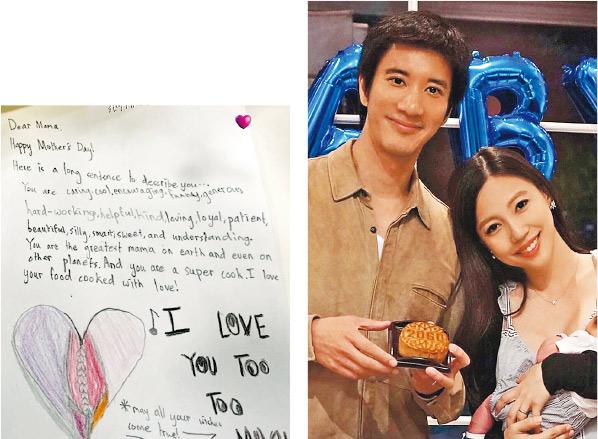 Dear Mama,
Happy Mother's Day!
Here is a long sentence to describe you...
You are caring, cool, encouraging, friendly, generous
hard-working, helpful, kind, loving, loyal, patient,
beautiful, silly, smart, sweet, and understanding.
You are the greatest mama on earth and even on
other planets. And you are a super cook. I love
your food cooked with love!
I LOVE
YOU TOO
TOO
*may all your wishes
come true!
B